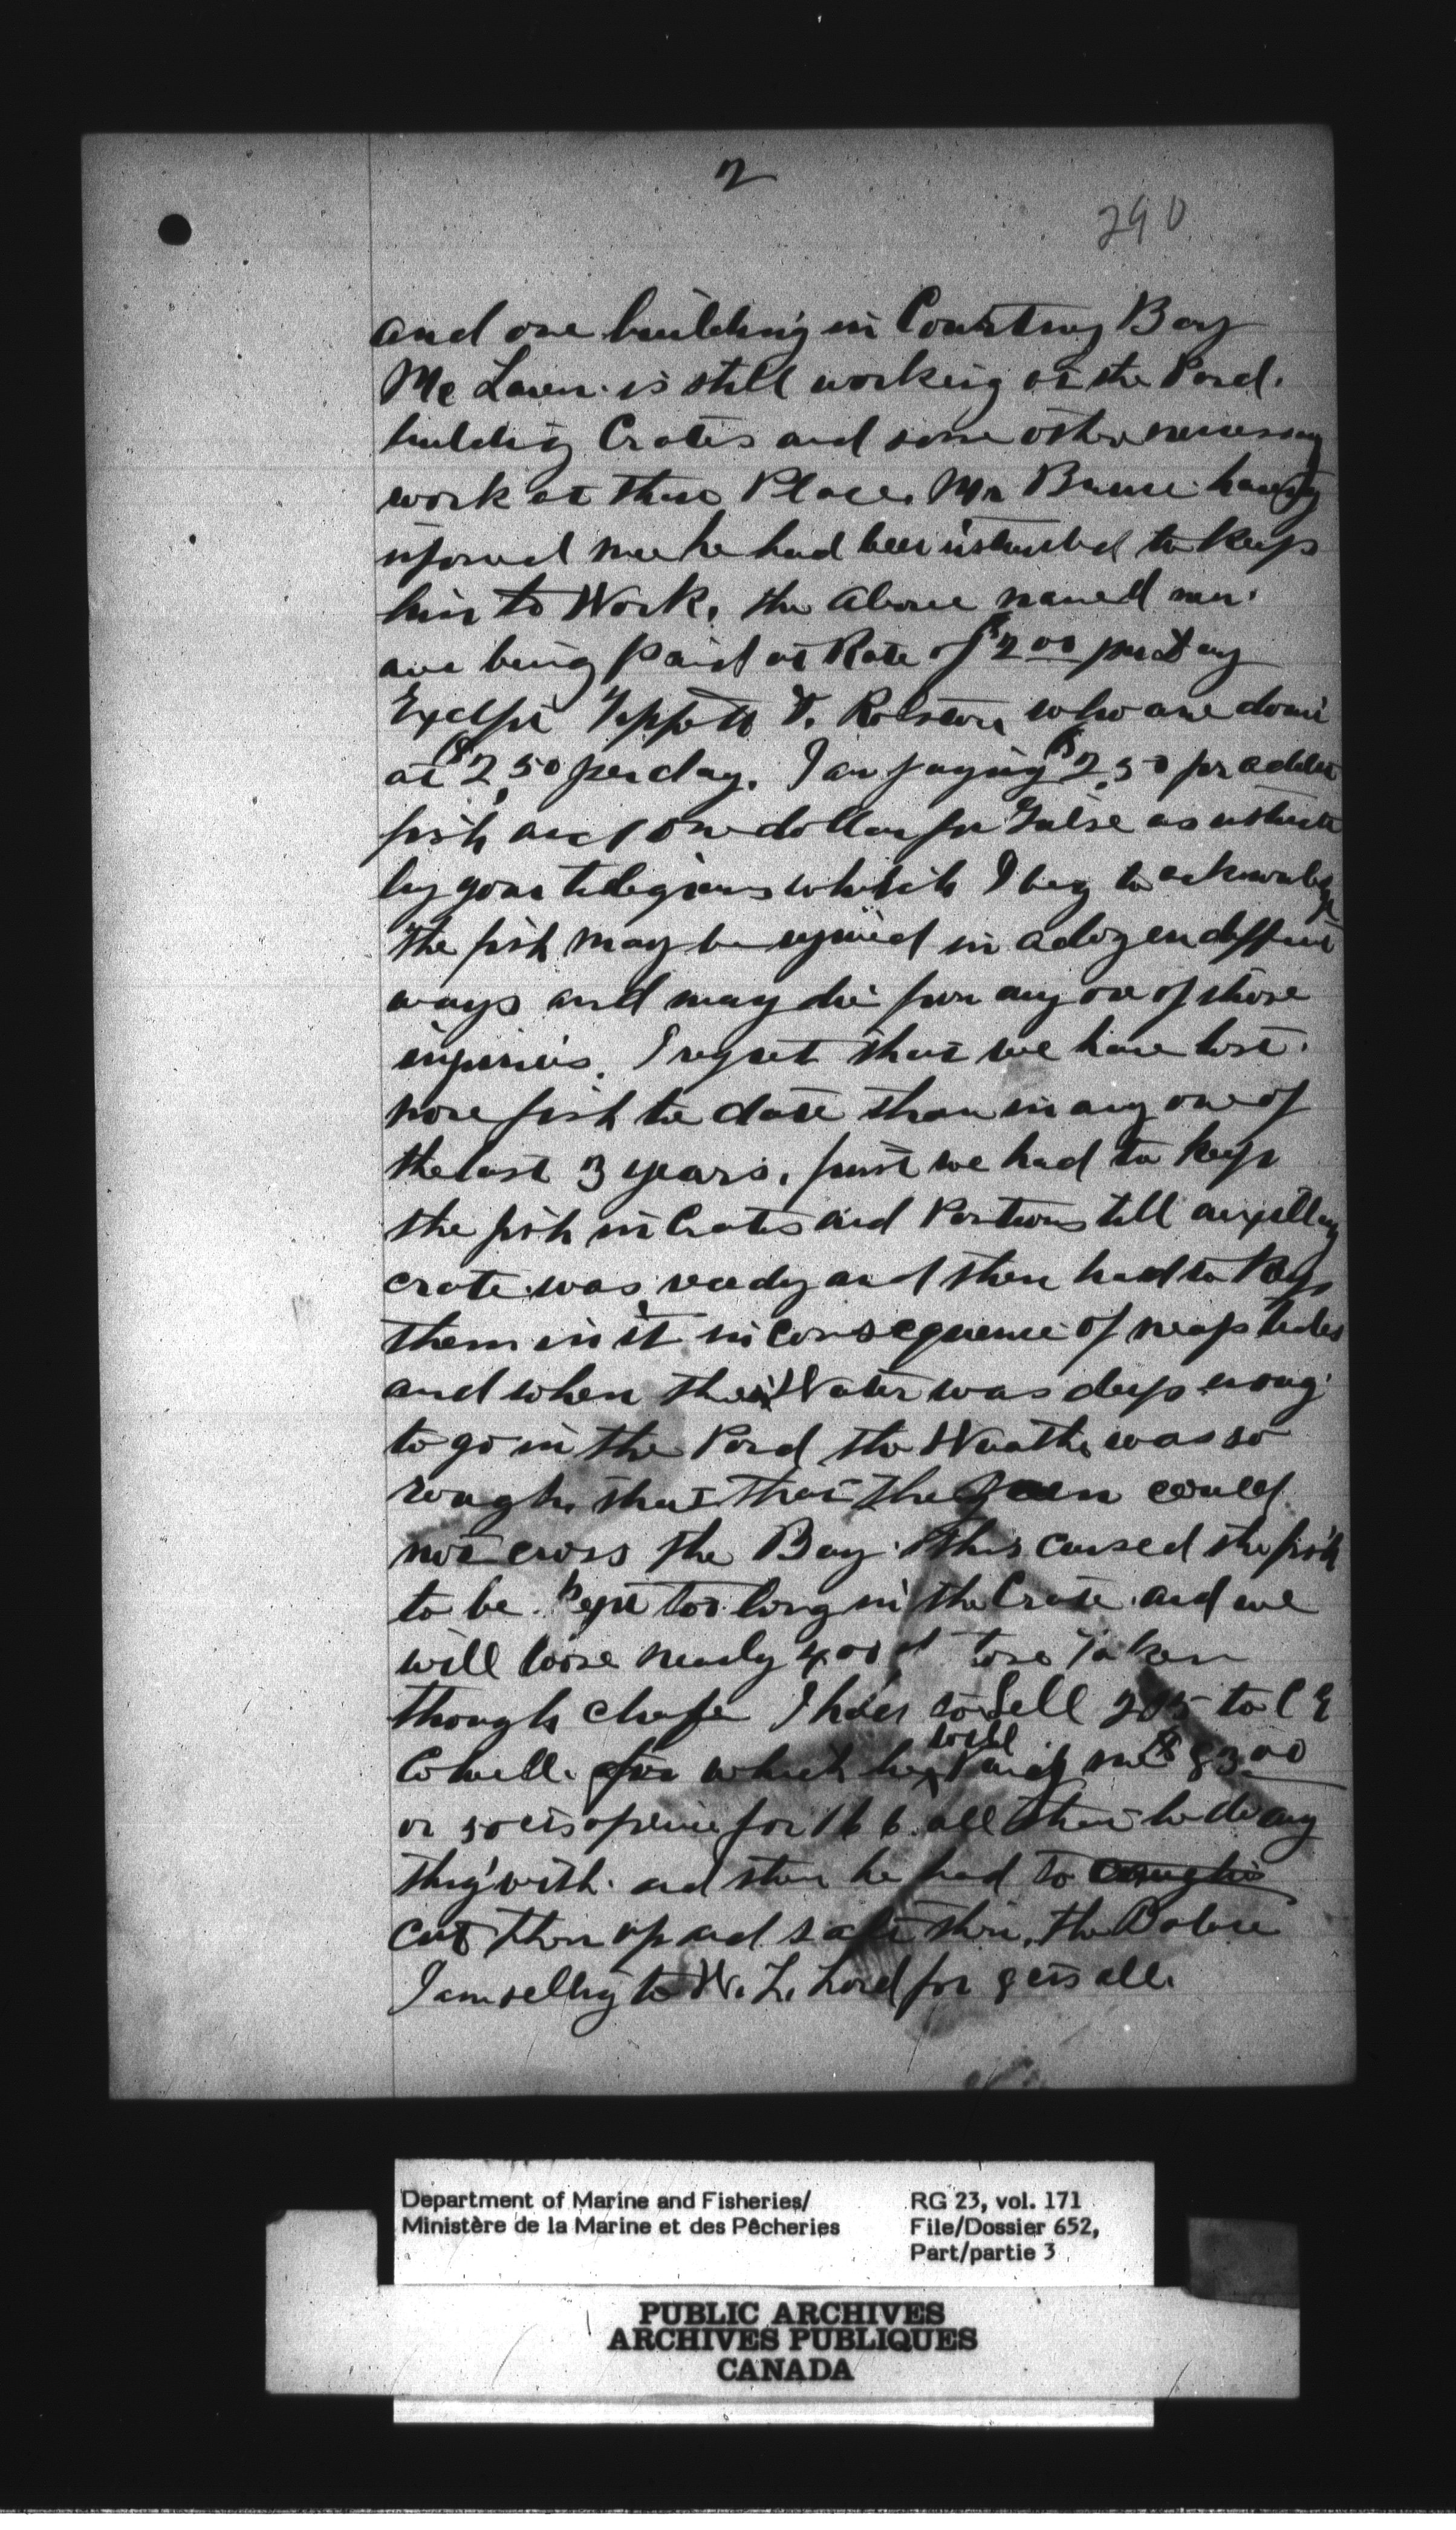 2
290
and one building in Courtney Bay
Mc Laren is still working at the Pond.
building Crates and some other necessary
work at these Place. Mr Brune having
informed me he had been instructed to Keep
him to Work, the above named men
are being Paid at Rate of $2 00 per Day
Except Tippett & Rolston who are down
at $2,50 per day. I am paying $2,50 for adult
fish and one dollar for Galse as instructed
by your telegrams which I beg to acknowledge
The fish may be injuried in a dozen different
ways and may die from any one of those
injuries. I regret that we have lost
more fish to date than in any one of
the last 3 years. first we had to keep
the fish in Crates and Pontoons till auxillary
crate was ready and then had to Keep
them in it in Consequence of neap tides
and when the Water was deep enoug
to go in the Pond the Weather was so
rough, that that the Men could
not cross the Bay. this caused the fish
to be Kept too long in the Crate and we
will loose nearly 400
though chafe I had to Sell 205 to C E
Cowell. for which he will me $83.00
or 50 cts apiece for 166 all that he do any
thing with. and then he had to
cut them up and salt them, the Balance
I am selling to W. L. Lord for 8 cts all.
Department of Marine and Fisheries/
Ministère de la Marine et des Pêcheries
RG 23, vol. 171
File/Dossier 652,
Part/partie 3
PUBLIC ARCHIVES
ARCHIVES PUBLIQUES
CANADA